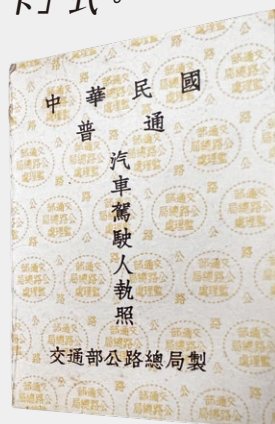 卡」式。
中華民國
普通
汽車駕駛人執照
交通部公路總局製